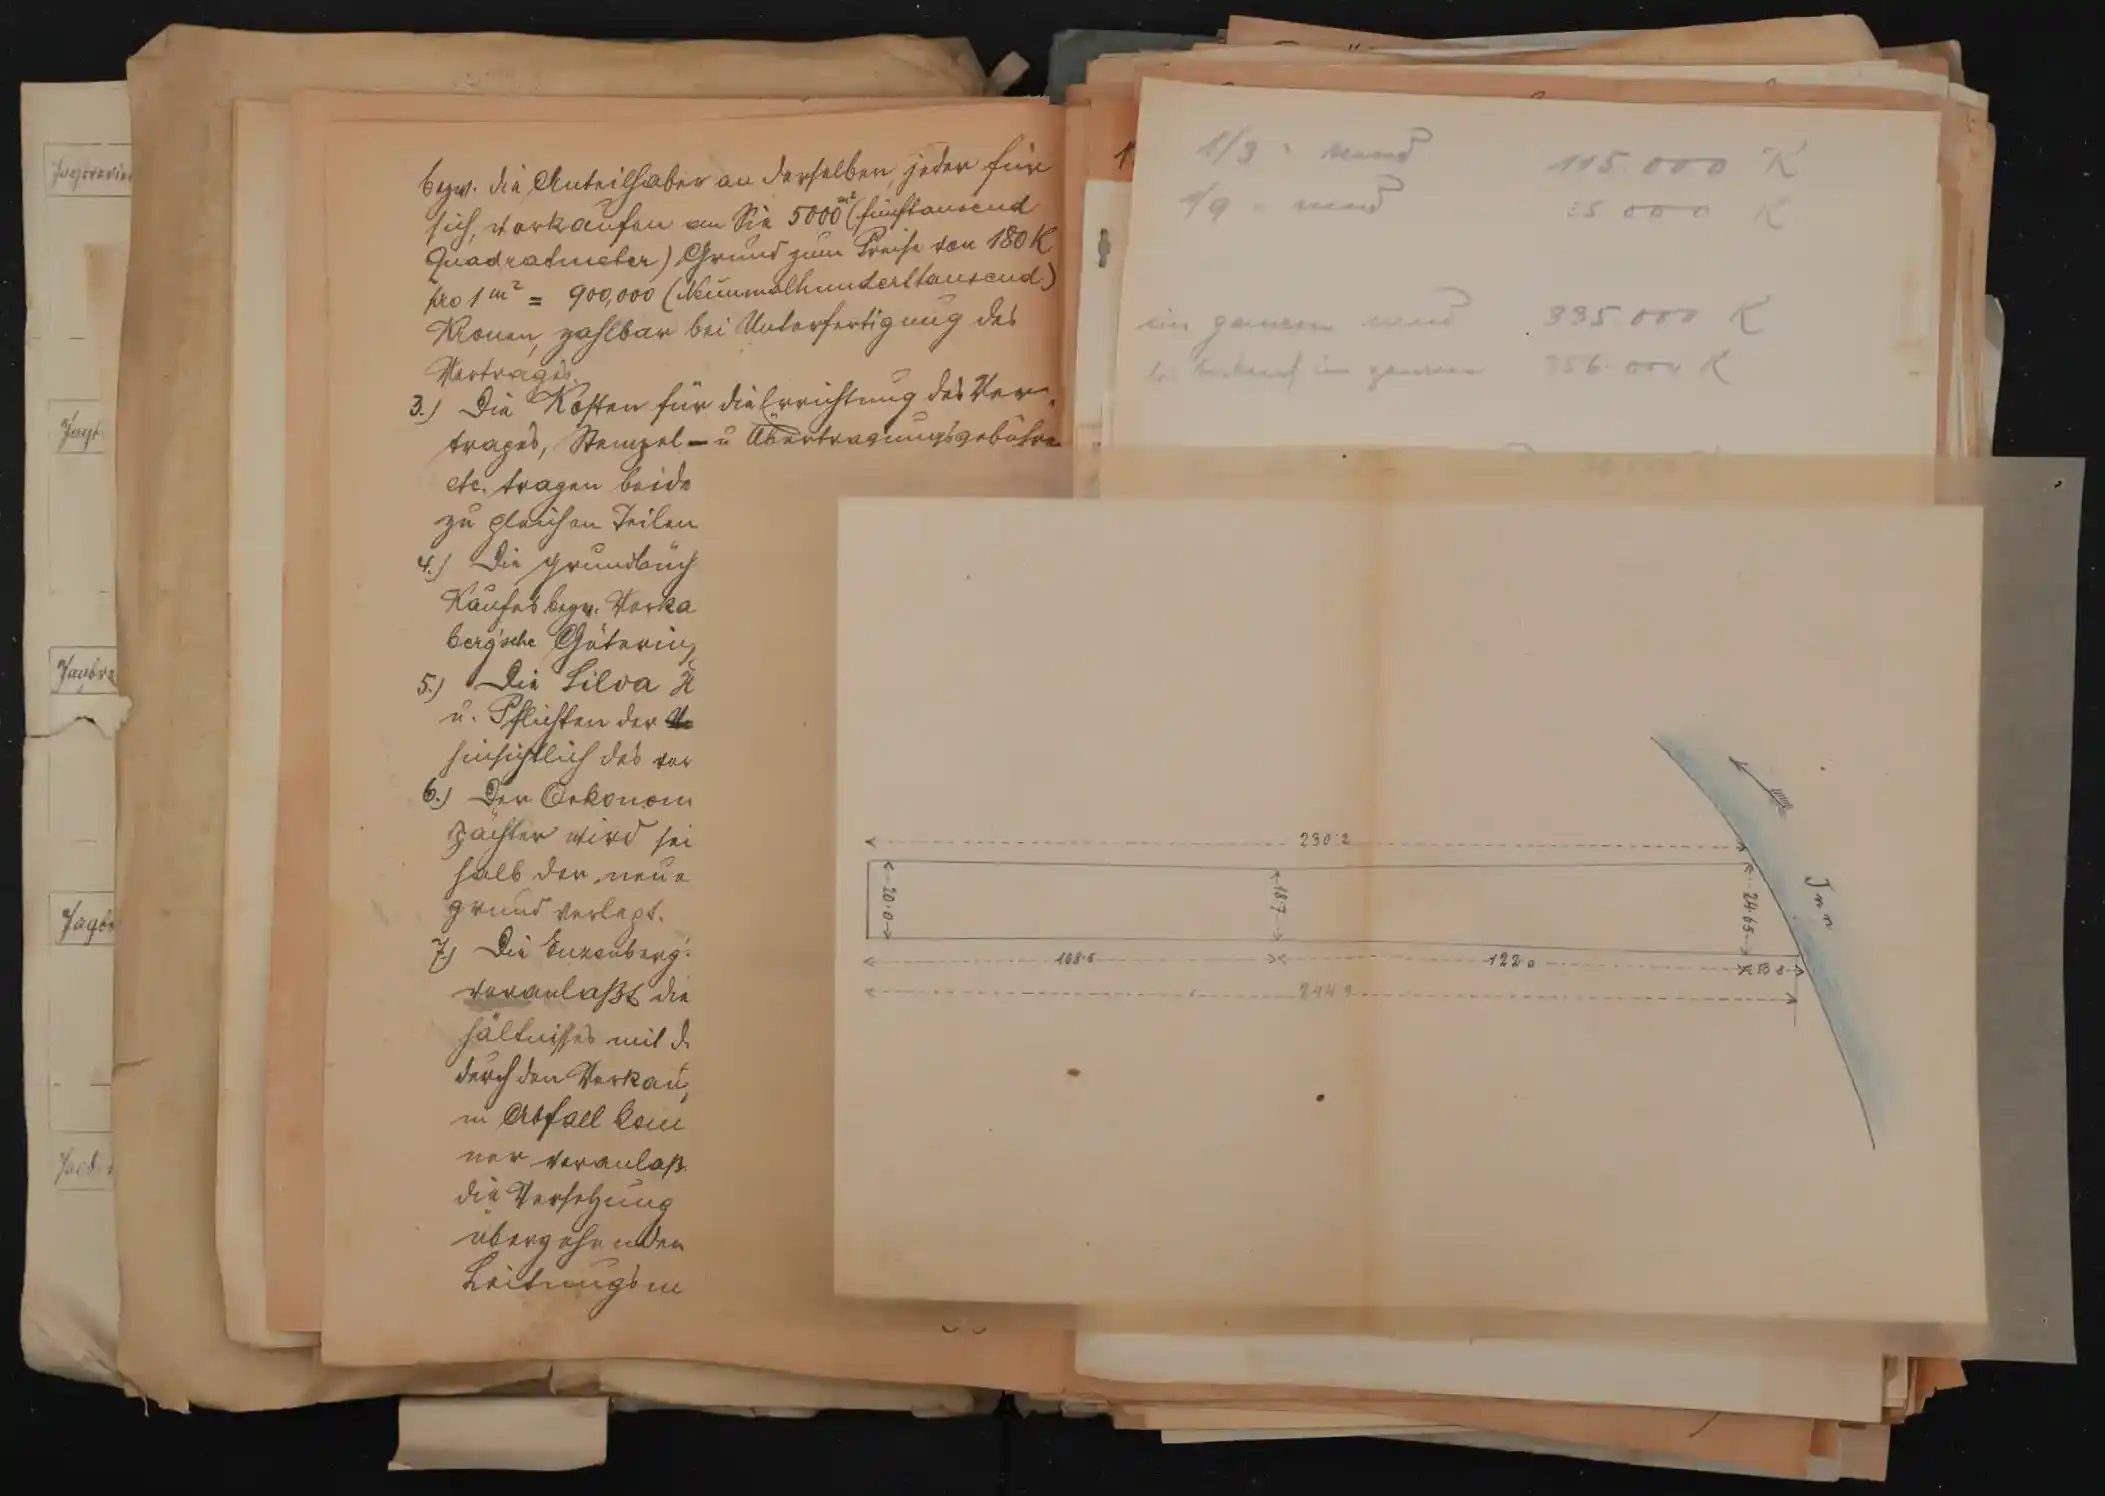 Jagdrevier
Jagd
Jagdre
Jagdr
Jagd
bezw. die Anteilhaber an derselben, jeder für
sich, verkaufen an Sie 5000 m² (fünftausend
Quadratmeter) Grund zum Preise von 180 K
pro 1 m² = 900,000 (Neunmalhunderttausend)
Kronen, zahlbar bei Unterfertigung des
Vertrages.
3.) Die Kosten für die Errichtung des Ver-
trages, Stempel- u Übertragungsgebühren
etc. tragen beide
zu gleichen Teilen
4.) Die grundbüch
Kaufes bezw. Verka
berg'sche Güterin
5.) Die Silva
u. Pflichten der
hinsichtlich des vor
6.) Der Oekonom
pächter wird sei
halb der neue
grund verlegt.
7.) Die Enzenberg'
veranlaßt die
hältnisses mit d
durch den Verkau
in Abfall kom
ner veranlaß
die Versetzung
übergehenden
Leitungsm
1/3 = rund 115.000 K
1/9 = rund 35 000 K
im ganzen rund 335.000 K
im ganzen 356.000 K
230·2
20·0
18·7
24·65
Inn
108·5
122·0
13·8
244·3